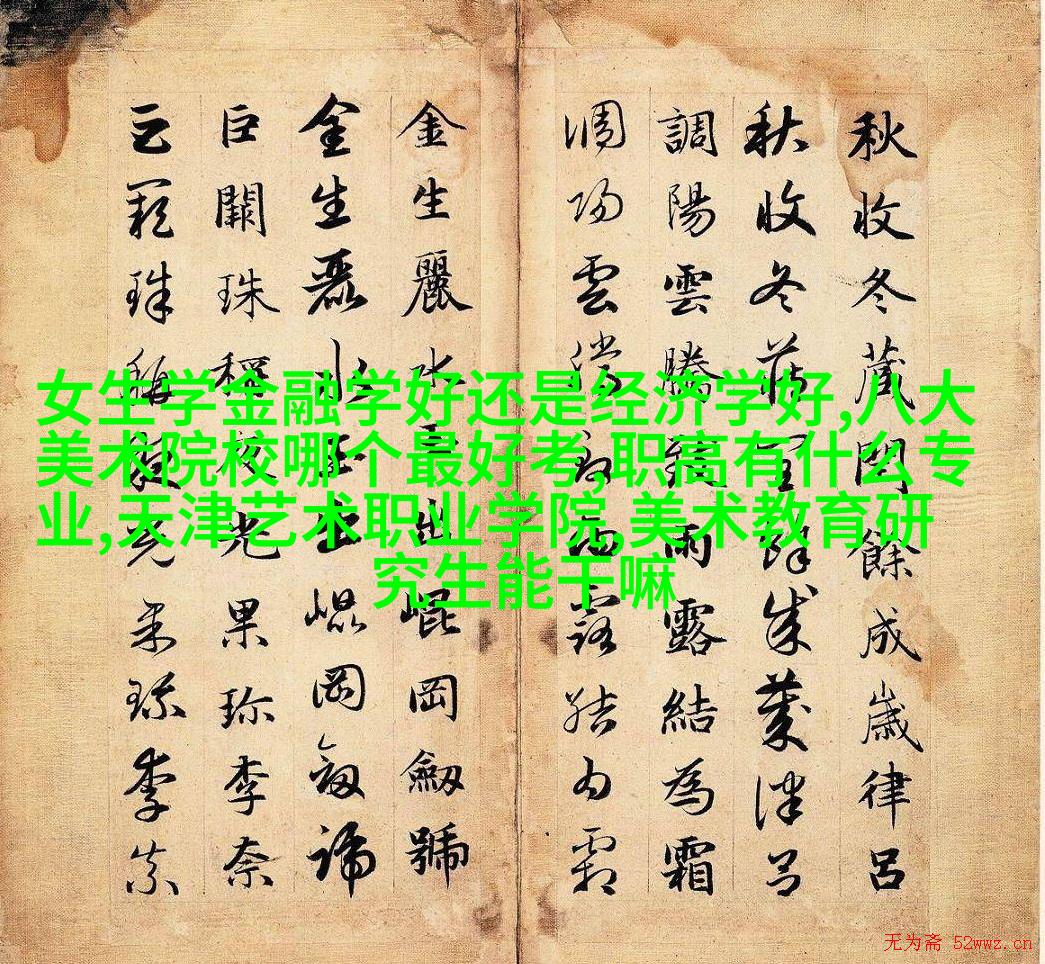 女生学金融学好还是经济学好,八大
美术院校哪个最好考,职高有什么专
业,天津艺术职业学院,美术教育研
究生能干嘛
秋收冬藏閏餘成歲律呂
秋收冬藏閏餘成歲律呂
調陽雲騰致雨露結為霜
調陽雲騰致雨露結為霜
金生麗水玉出崐岡劔號
金生麗水玉出崐岡劔號
巨闕珠稱夜光果珍李奈
巨闕珠稱夜光果珍李奈
无为斋 52wwz.cn